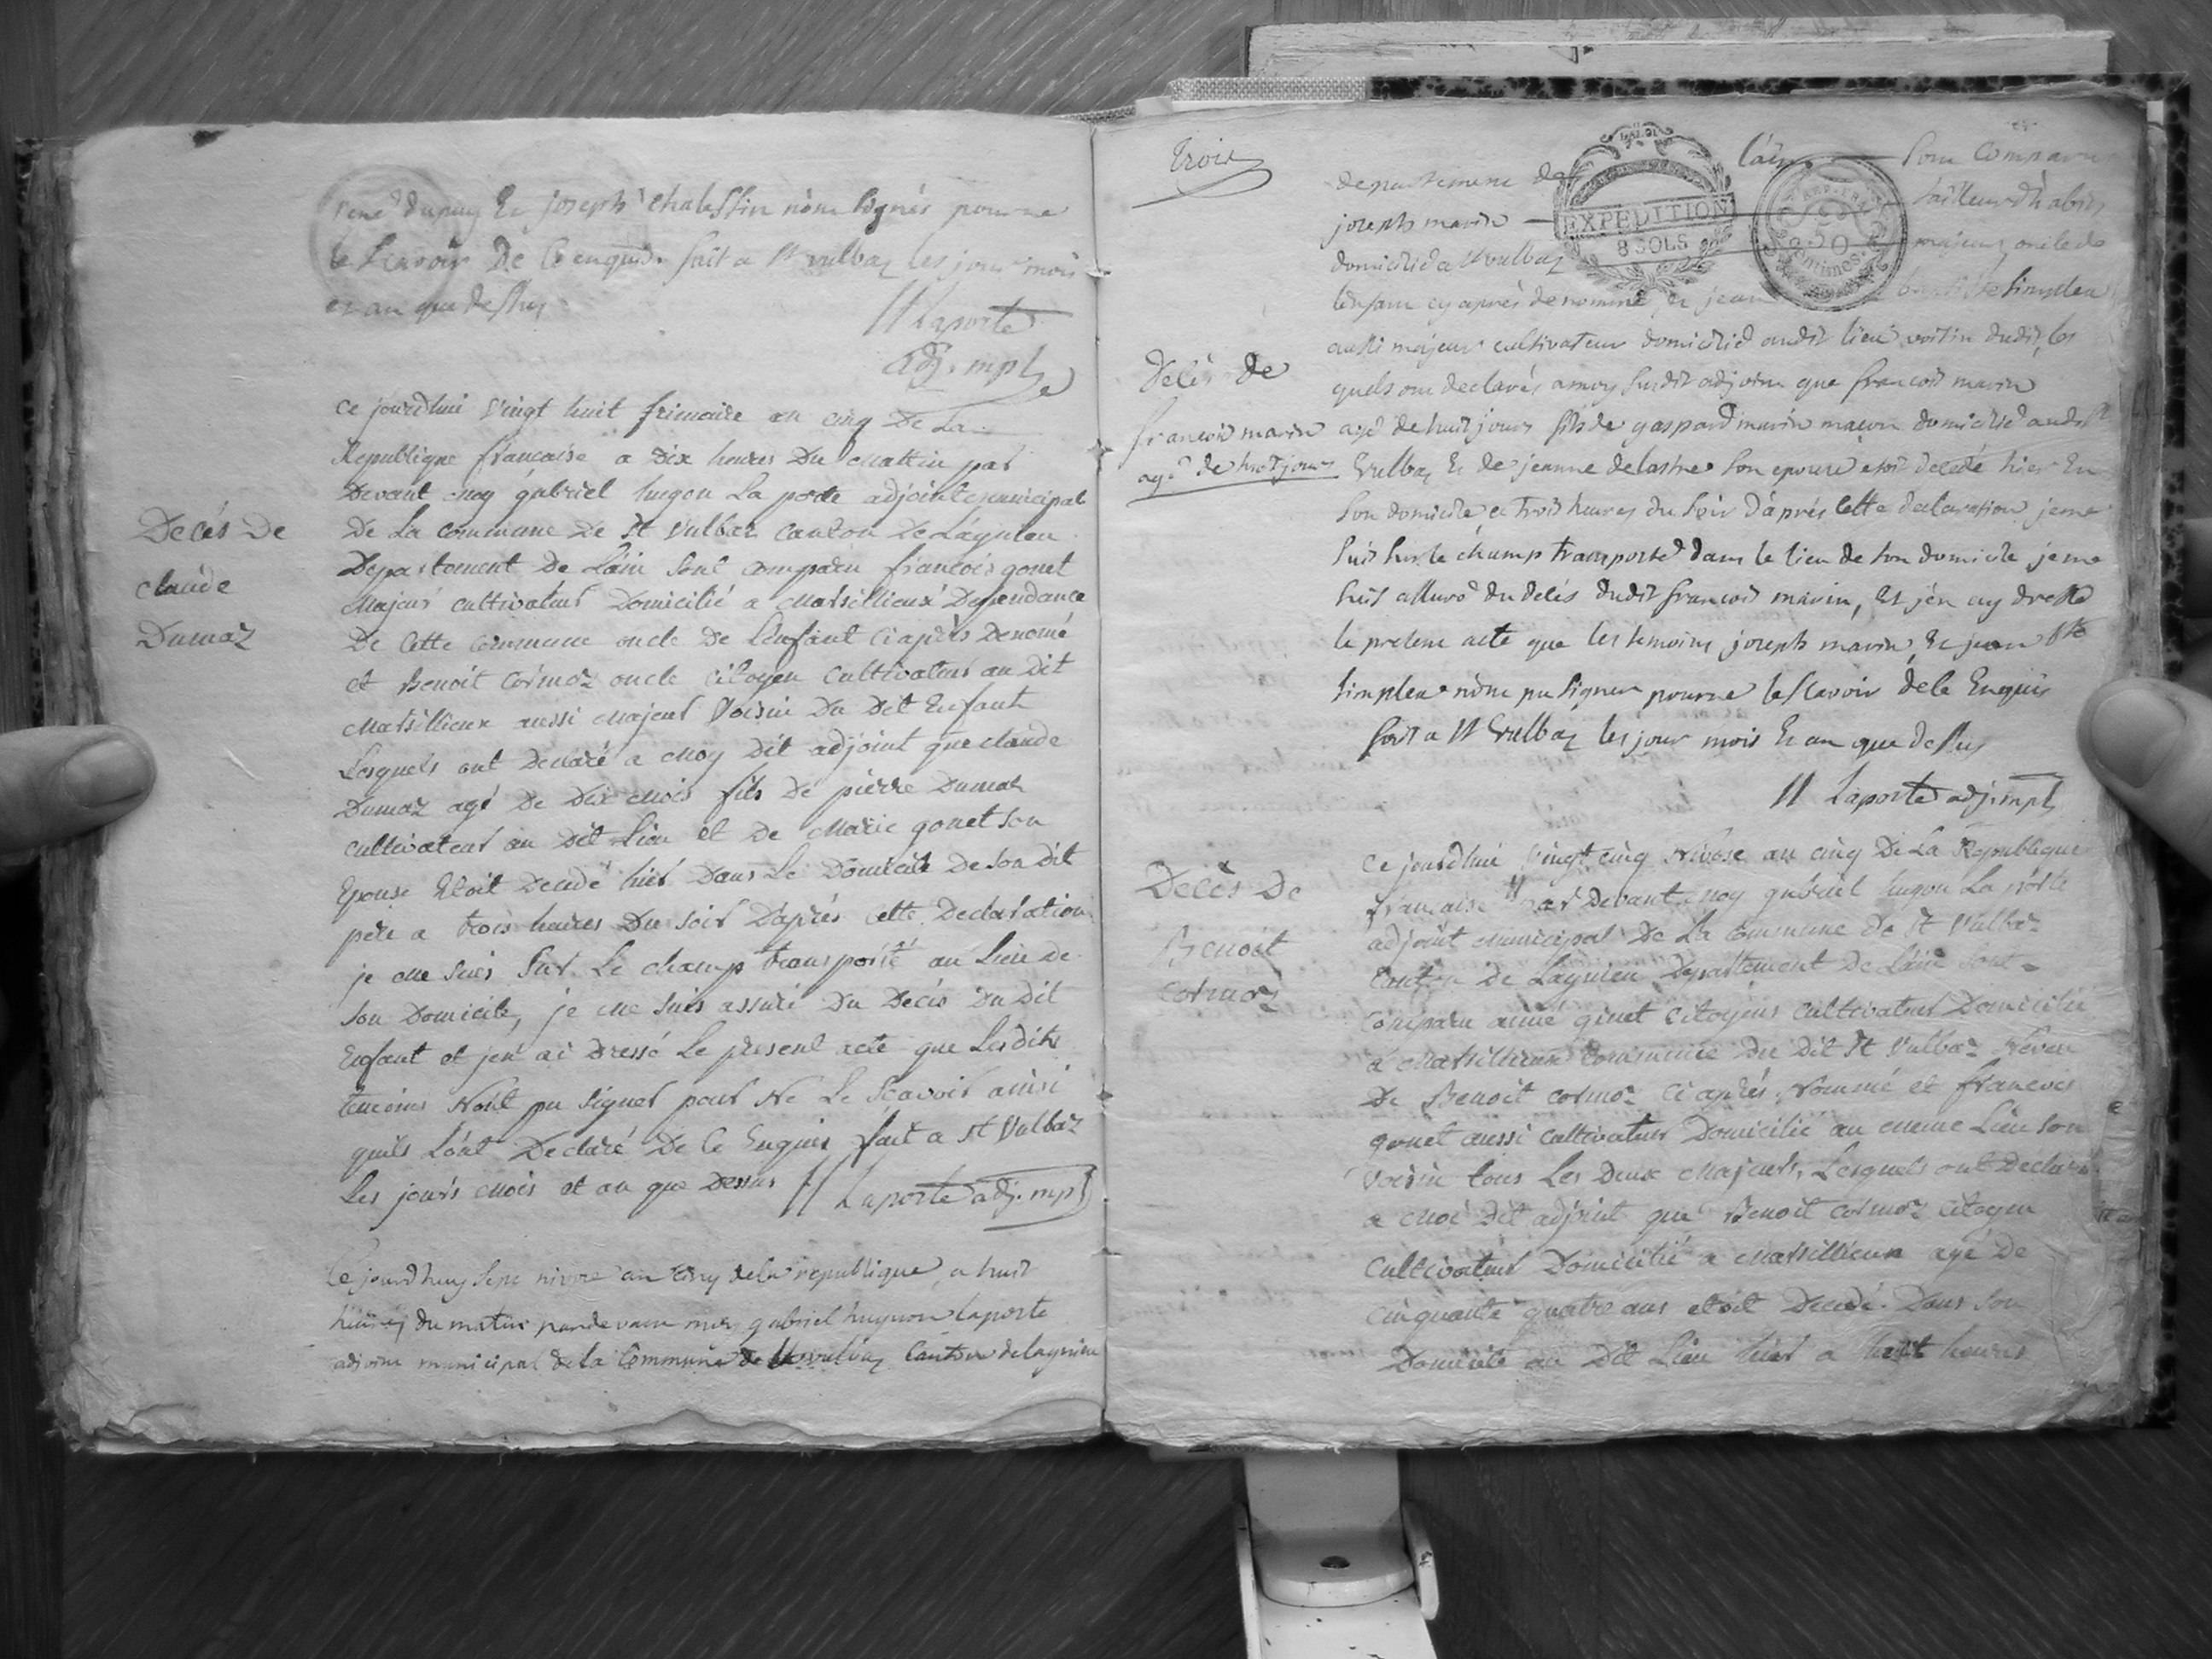 rené dupuy Et joseph chalessin nòm signés pour ne
le scavoir De Ce enquis fait a St vulbaz les jour mois
et an que dessus
H Laporte
adj. mpl
Decés De
claude
Dumaz
ce jourdhui vingt huit frimaire an cinq De La
Republique francaise a Dix heures Du Mattin par
Devant moy gabriel hugon La porte adjoint municipal
De La commune De St Vulbaz canton De Lagnieu
Departement De Lain sont comparu francois gonet
Majeur cultivateur Domicilié a Marsillieux Dependance
De Cette commune oncle De L'enfant Ciaprès Denomé
et Benoit Cormoz oncle citoyen Cultivateur au dit
Marsillieux aussi Majeur Voisin Du Dit Enfant
Lesquels ont Declaré a Moy Dit adjoint que claude
Dumaz agé De Dix Mois fils De pierre Dumaz
cultivateur au Dit Lieu et De Marie gonet son
Epouse Etoit Decedé hier Dans Le Domicile De son dit
pere a trois heures Du soir D'aprés Cette Declaration
je me suis sur Le champ transporté au Lieu de
son Domicile, je me suis assuré Du Decés Du Dit
Enfant et jen ai Dressé Le present acte que Lesdits
temoins Nont pu signer pour Ne Le Scavoir ainsi
quils L'ont Declaré De Ce Enquis fait a St Vulbaz
Les jours mois et an que Dessus H Laporte adj. mpl
Ce jourdhuy sept nivose an cinq dela republique a huit
heures du matin pardevant moy gabriel hugon laporte
adjoint municipal dela Commune de St vulbaz Canton delagnieu
Trois
departement de lain sont Comparu
joseph marin tailleur d'habits
domicilié a St vulbaz majeur oncle de
lenfant cy aprés denommé et jean baptiste simplex
aussi majeur cultivateur domicilié audit lieu voisin dudit les
quels ont declarés a moy susdit adjoint que francois marin
Decés de
francois marin
agé de huit jours
agé de huit jours fils de gaspard marin macon domicilié audit St
Vulbaz Et de jeanne delastre son epouse etoit decedé hier En
son domicile a trois heures du soir d'aprés Cette declaration jeme
suis sur le champ transporté dans le lieu de son domicile jeme
suis assuré du decés dudit francois marin, Et j'en ay dressé
le present acte que les temoins joseph marin Et jean Bte
simplex nòm pu signer pour ne le scavoir de ce Enquis
fait a St Vulbaz les jour mois Et an que dessus
H Laporte adj. mpl
Decès De
Benoit
cormoz
ce jourdhui vingt cinq Nivose an cinq De La Republique
francaise par Devant moy gabriel hugon La porte
adjoint municipal De La Commune De St Vulbaz
Canton De Lagnieu Departement De Lain sont
comparu aimé ginet Citoyens Cultivateur Domicilié
a Marsillieux Commune Du Dit St Vulbaz Neveu
De Benoit cormoz Ciaprés Nommé et francois
gonet aussi cultivateur Domicilié au meme Lieu son
voisin tous Les Deux Majeurs, Lesquels ont Declaré
a Moi Dit adjoint que Benoit cormoz Citoyen
Cultivateur Domicilié a Marsillieux agé de
Cinquante quatre ans etoit Decedé Dans son
Domicile au Dit Lieu hier a huit heures
EXPEDITION
8 SOLS